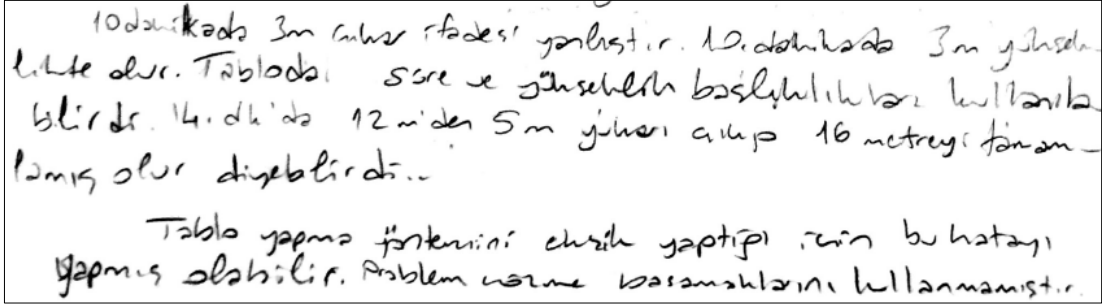 10 dakikada 3m çıkar ifadesi yanlıştır. 10. dakikada 3m yüksek-
likte olur. Tabloda süre ve yükseklik başlıklıkları kullanıla
bilirdi. 14. dk'da 12 m'den 5m yukarı çıkıp 16 metreyi tamam-
lamış olur diyebilirdi..
Tablo yapma yöntemini eksik yaptığı için bu hatayı
yapmış olabilir. Problem çözme basamaklarını kullanmamıştır.